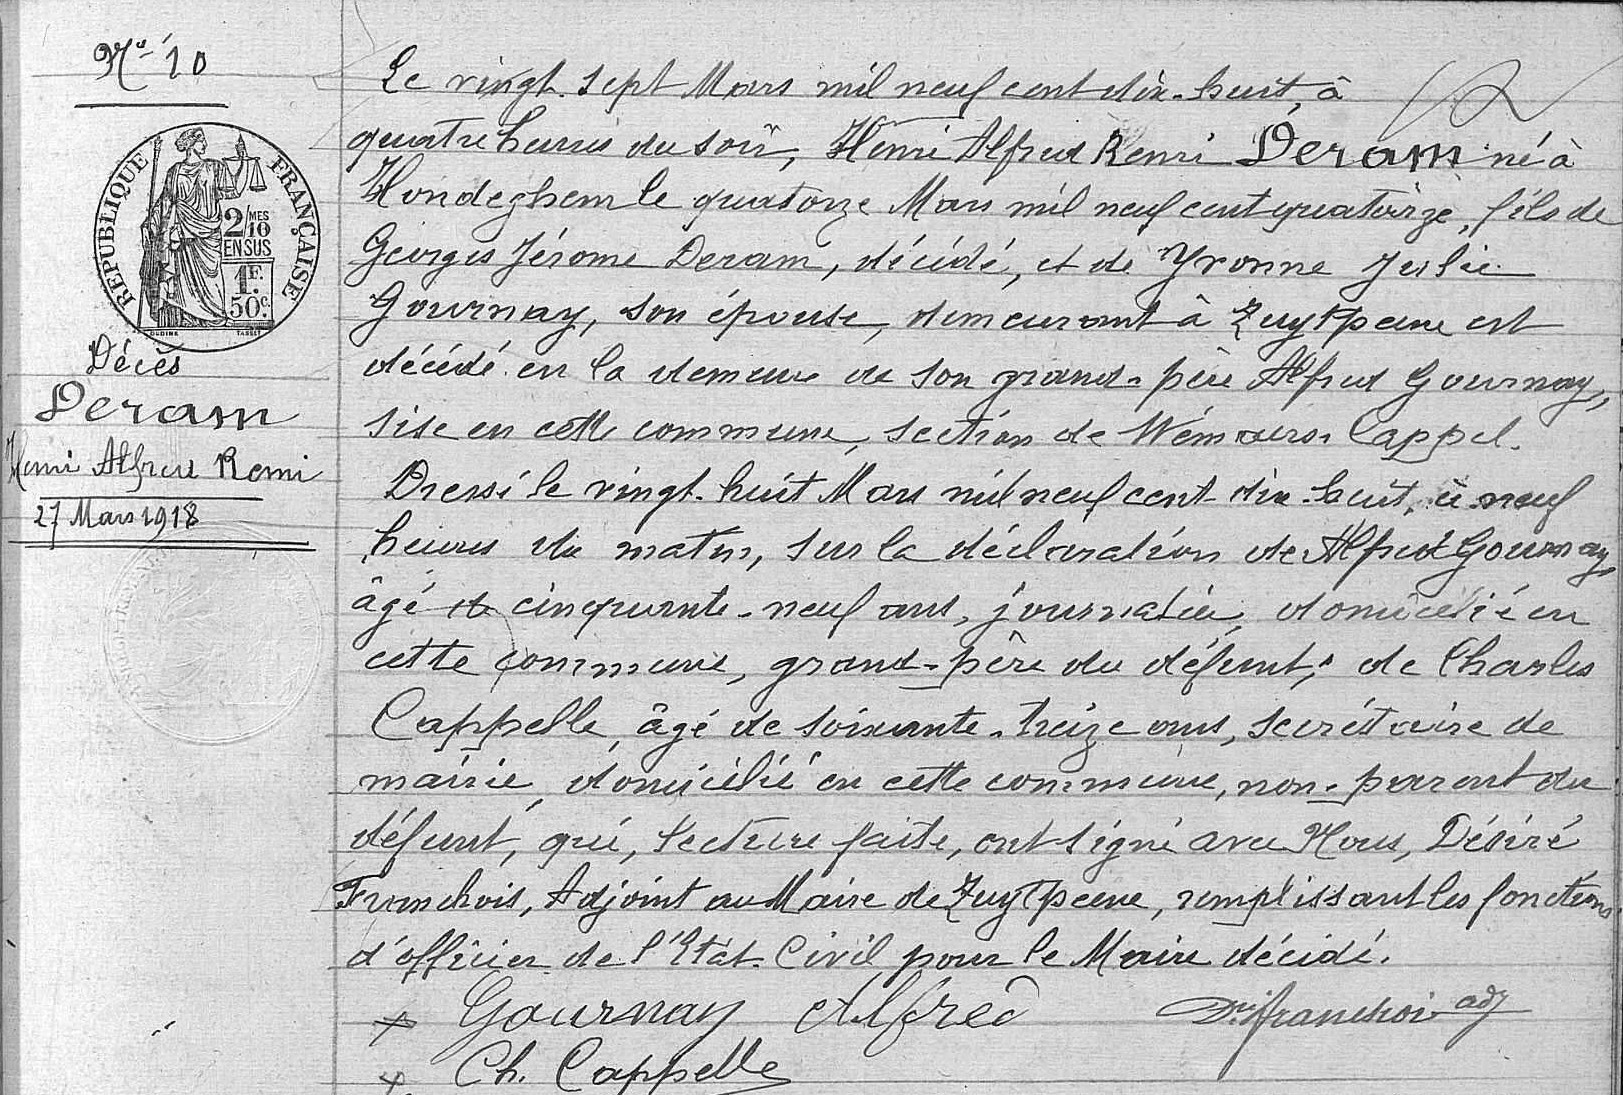 N° 10
RÉPUBLIQUE FRANÇAISE
2/10 MES
EN SUS
1F.
50c.
OUDINÉ TASSET
Décès
Deram
Henri Alfred Remi
27 Mars 1918
Le vingt-sept Mars mil neuf cent dix-huit, à
quatre heures du soir, Henri Alfred Remi Deram né à
Hondeghem le quatorze Mars mil neuf cent quatorze, fils de
Georges Jérome Deram, décédé, et de Yvonne Julie
Gournay, son épouse, demeurant à Zuytpeene est
décédé en la demeure de son grand-père Alfred Gournay,
sise en cette commune, section de Wemaers-Cappel.
Dressé le vingt-huit Mars mil neuf cent dix-huit, à neuf
heures du matin, sur la déclaration de Alfred Gournay,
âgé de cinquante-neuf ans, journalier, domicilié en
cette commune, grand-père du défunt, de Charles
Cappelle, âgé de soixante-treize ans, secrétaire de
mairie, domicilié en cette commune, non-parent du
défunt, qui, lecture faite, ont signé avec Nous, Désiré
Franchois, Adjoint au Maire de Zuytpeene, remplissant les fonctions
d'officier de l'Etat-Civil pour le Maire décédé.
Gournay Alfred
Dré franchois adj
Ch. Cappelle